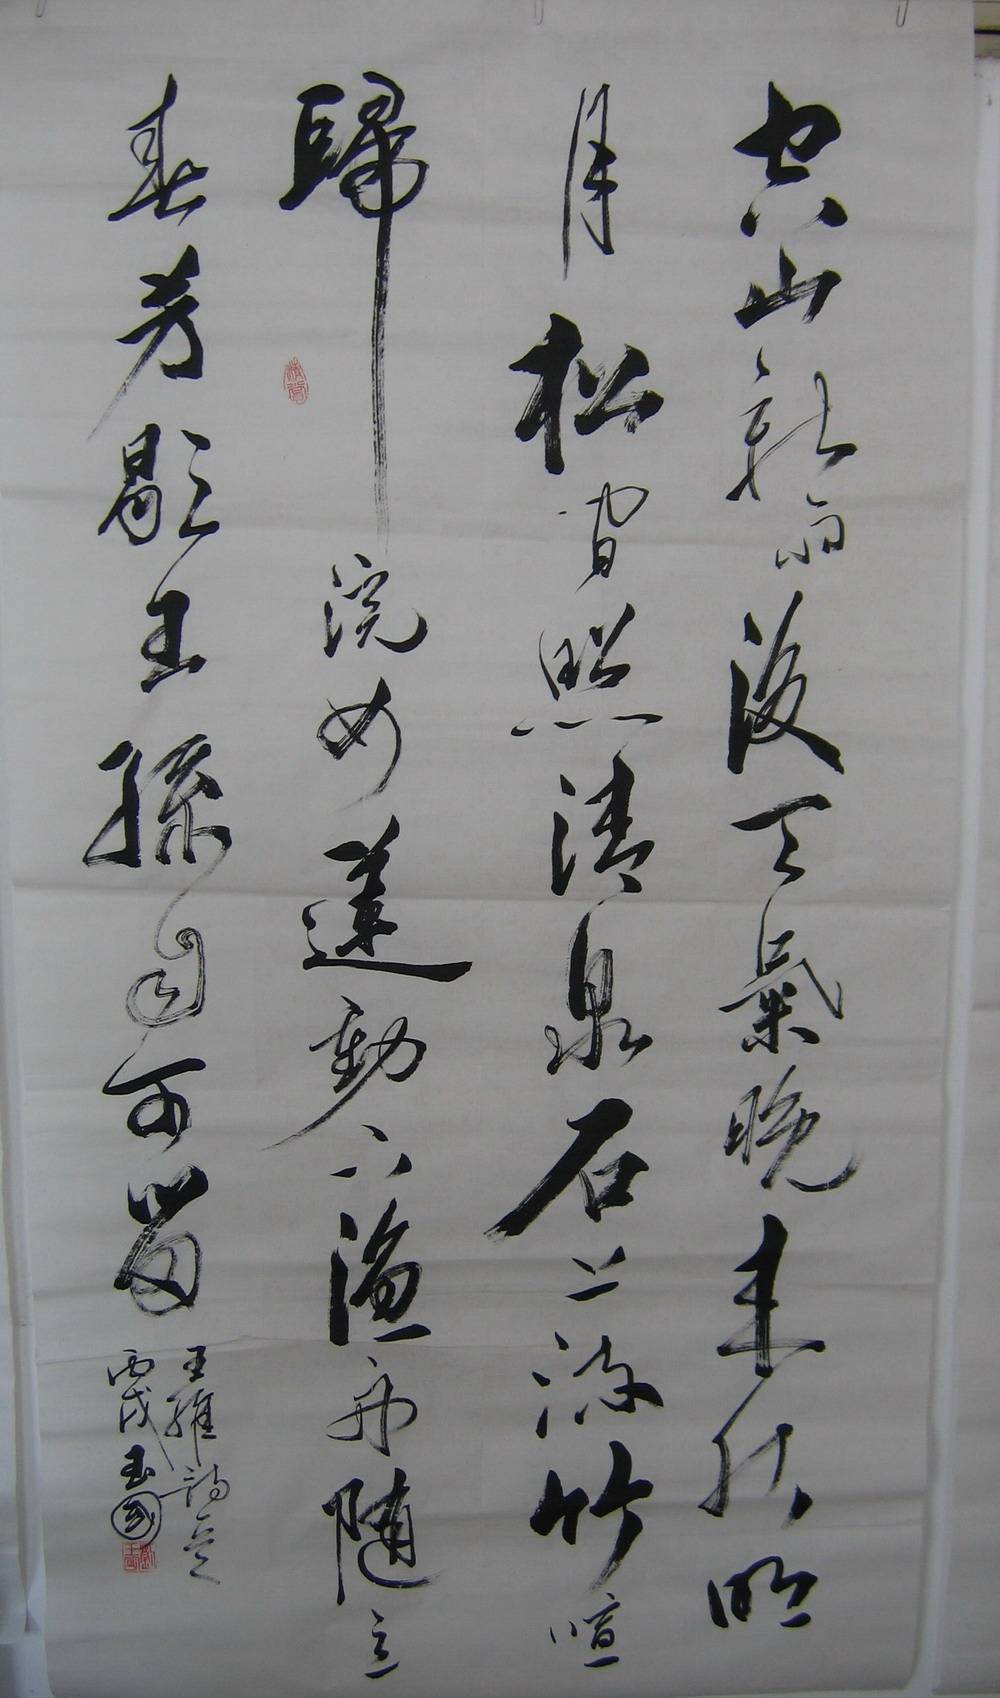 空山新雨後天氣晚來秋明
月松間照清泉石上流竹喧
歸浣女蓮動下漁舟隨意
春芳歇王孫自可留
王維詩意
丙戌玉國